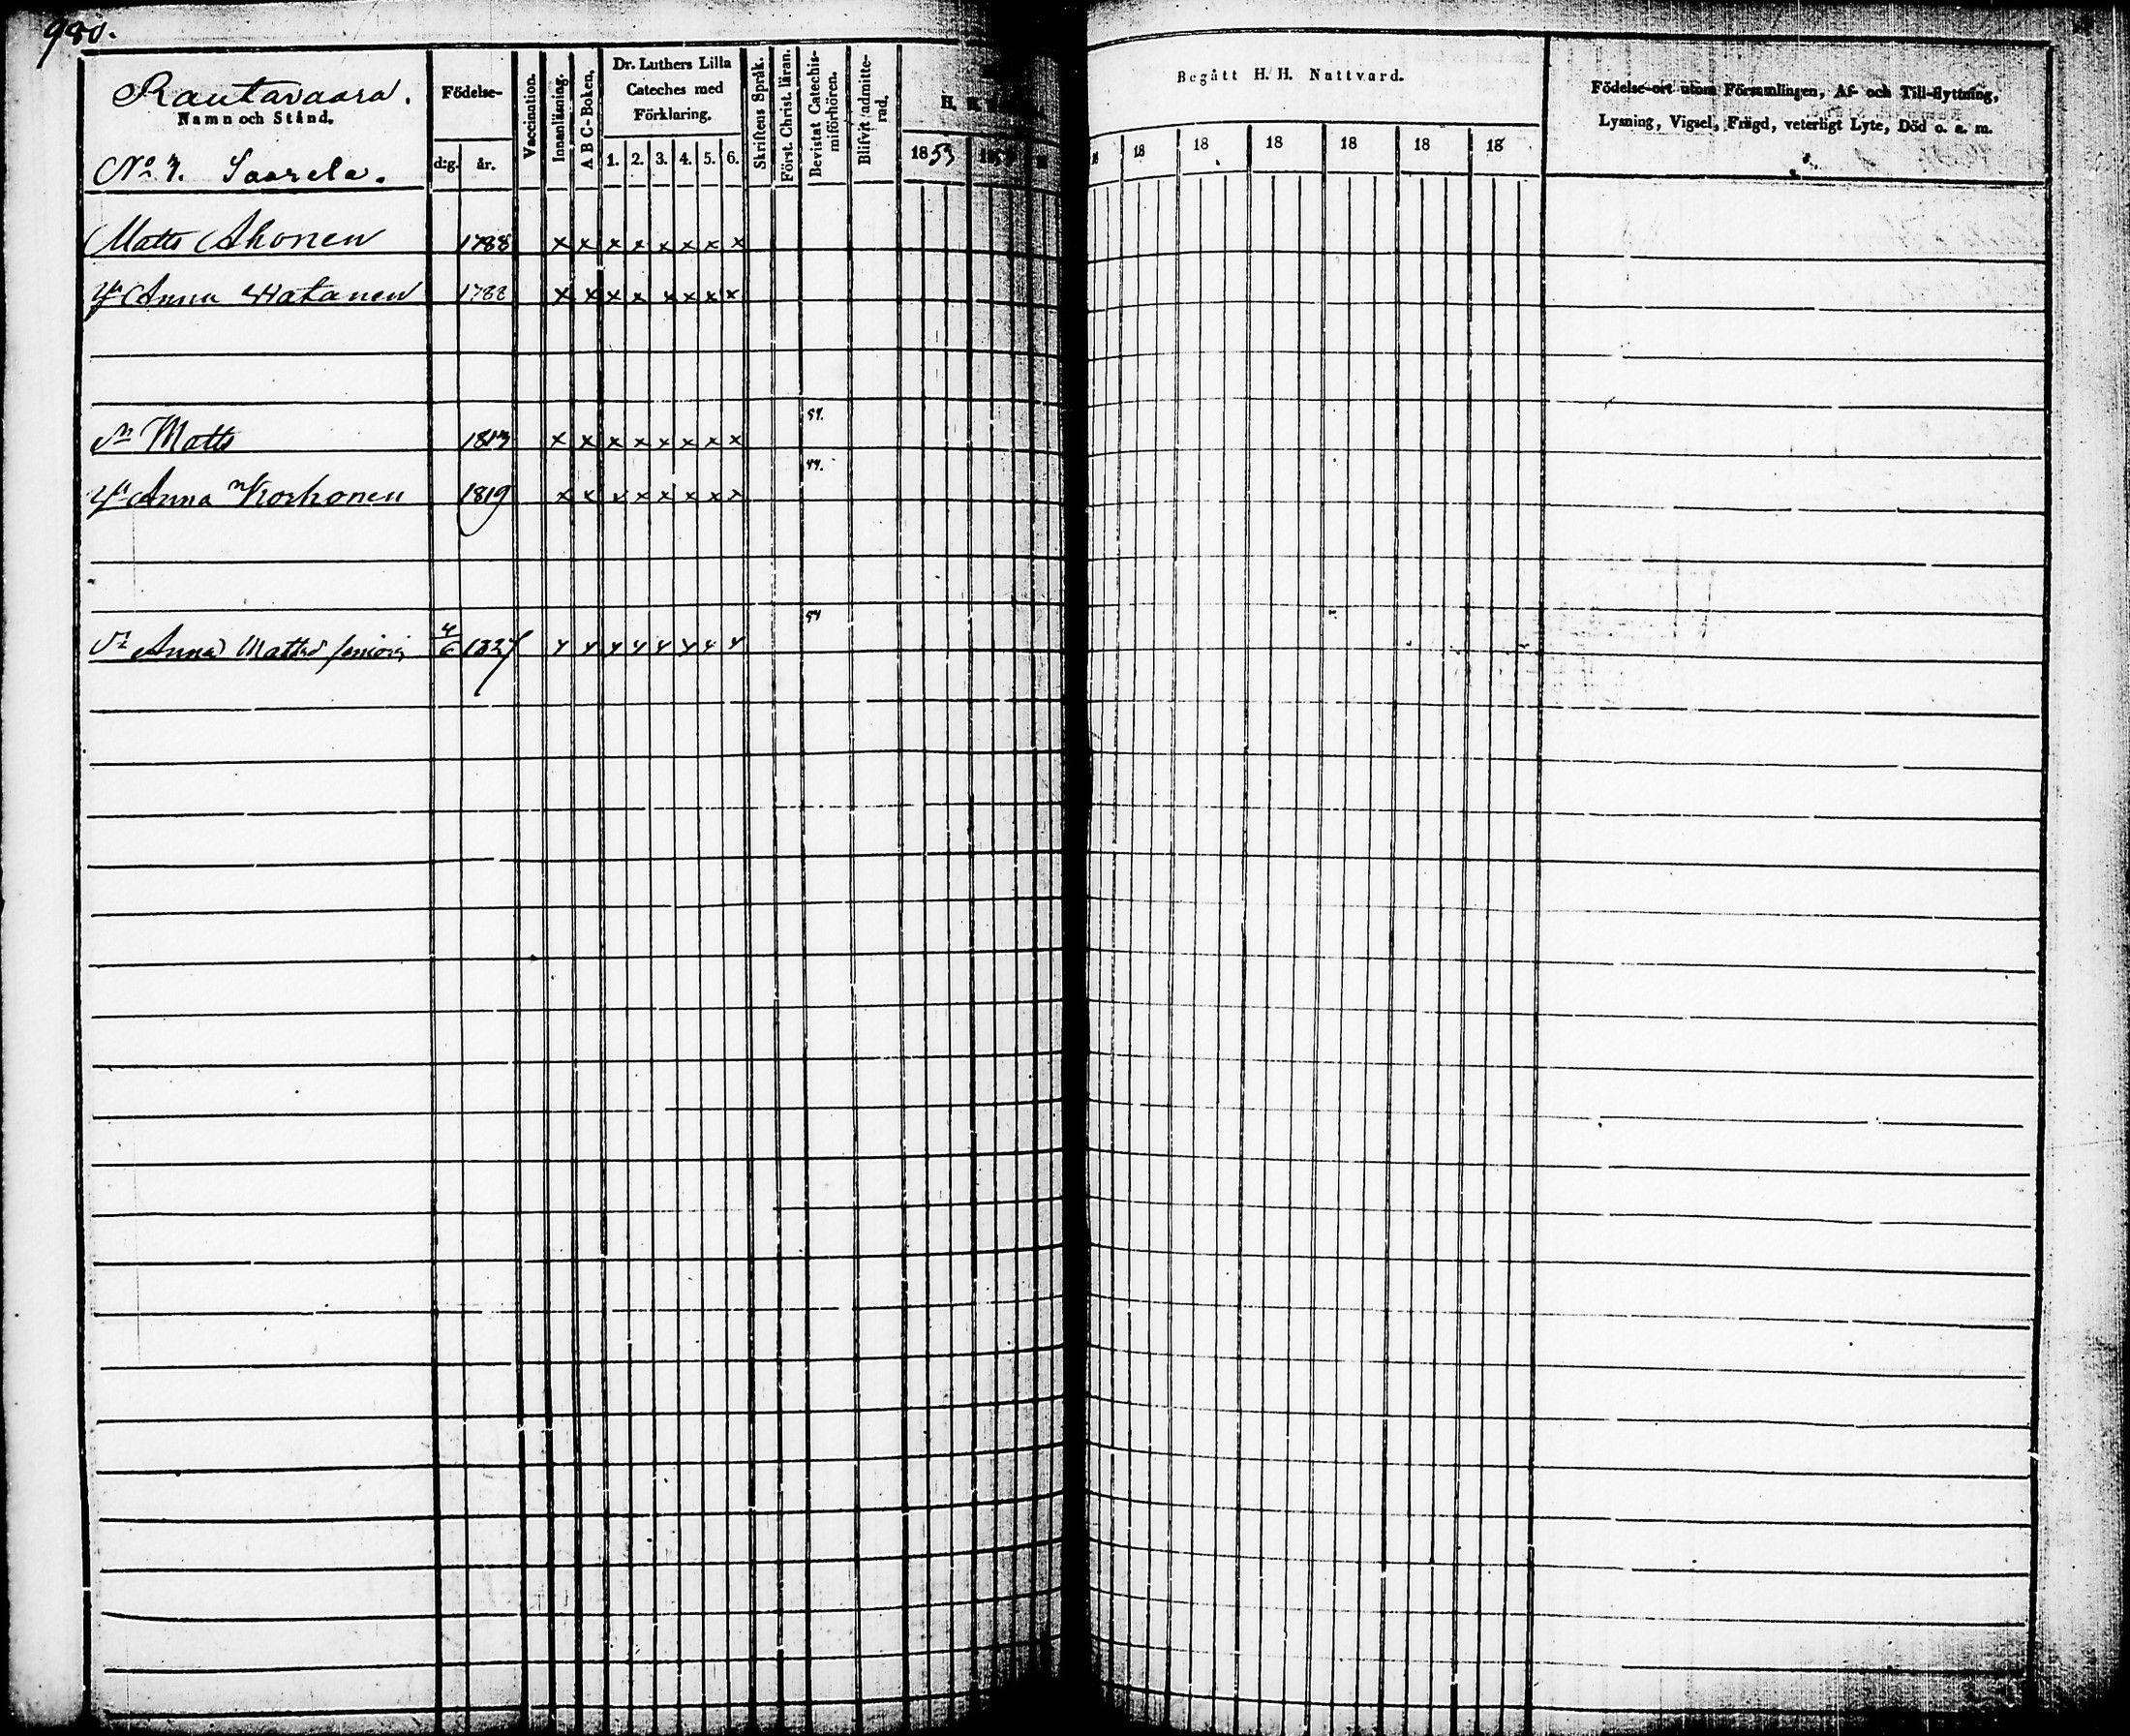 980.
Rautavaara.
Namn och Stånd.
No 3. Saarela.
Födelse-
d:g. år.
Vaccination.
Innanläsning.
A B C-Boken.
Dr. Luthers Lilla
Cateches med
Förklaring.
1. 2. 3. 4. 5. 6.
Skriftens Språk.
Först. Christ. läran.
Bevistat Catechis-
miförhören.
Blifvit admitte-
rad.
H. H.
1853 18
Begått H. H. Nattvard.
18 18 18 18 18 18
Födelse-ort utom Församlingen, Af- och Till-flyttning,
Lysning, Vigsel, Frägd, veterligt Lyte, Död o. s. m.
Matts Ahonen 1788 x x x x x x x x
Hu Anna Hatanen 1788 x x x x x x x x
Sn Matts 1813 x x x x x x x x 54.
Hu Anna Korhonen 1819 x x x x x x x x 44.
Dr Anna Mattsd 4/6 1837 x x x x x x x x 54